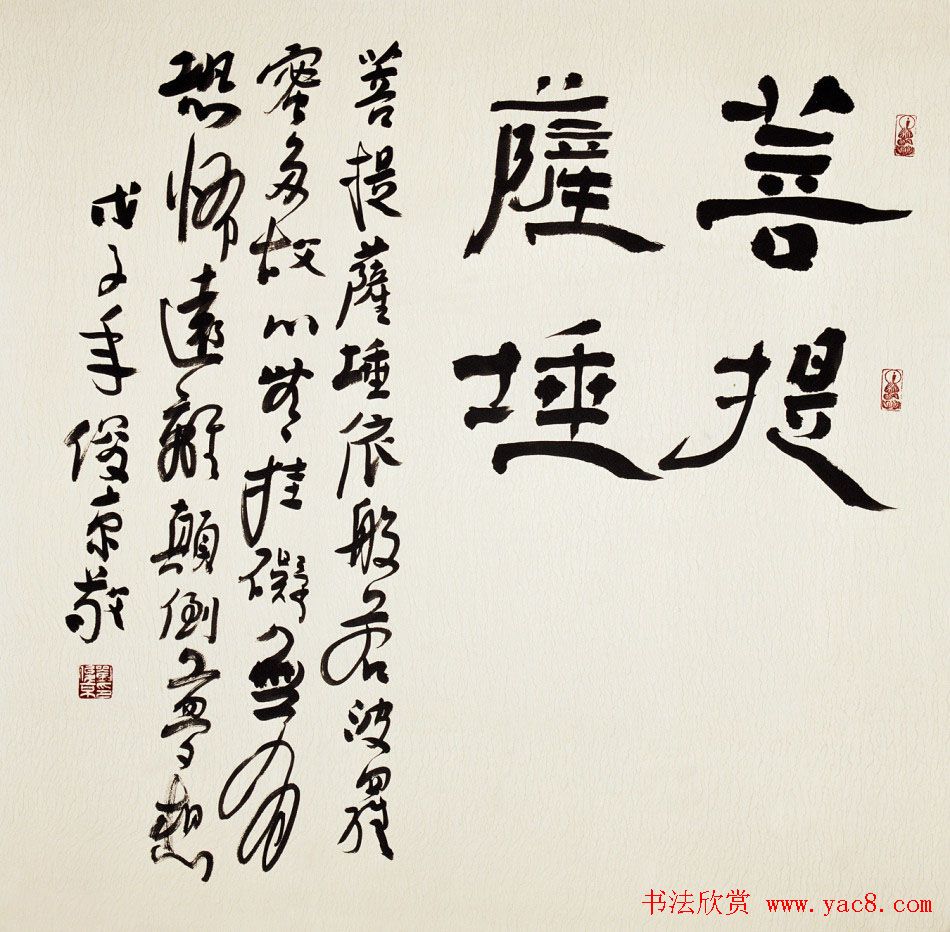 菩提
薩埵
菩提薩埵依般若波羅
蜜多故心無挂礙無有
恐怖遠離顛倒夢想
戊子年俊京敬
书法欣赏 www.yac8.com